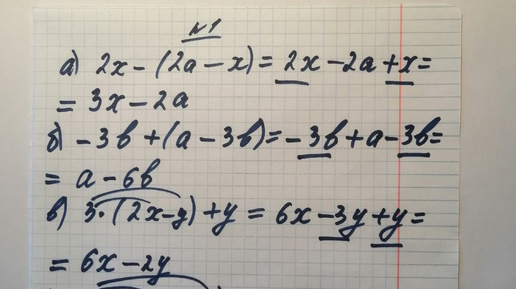 №1
а) 2x - (2a - x) = 2x - 2a + x =
= 3x - 2a
б) - 3b + (a - 3b) = - 3b + a - 3b =
= a - 6b
в) 3 · (2x - y) + y = 6x - 3y + y =
= 6x - 2y